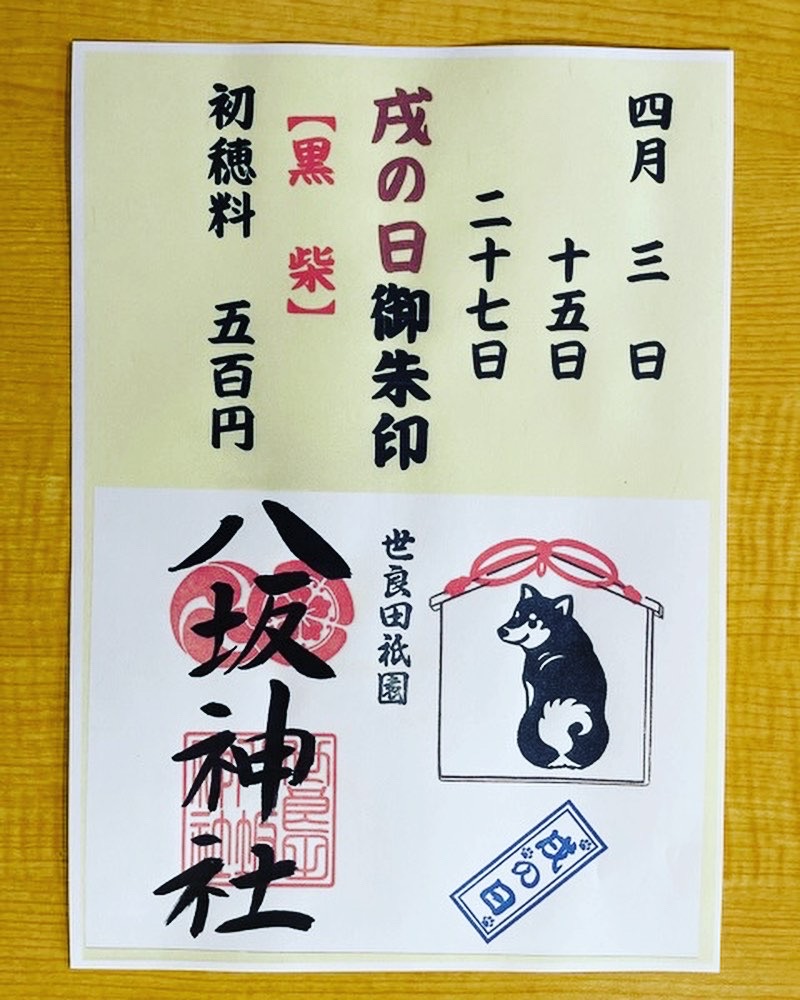 四月 三 日
十五日
二十七日
戌の日御朱印
【黒 柴】
初穂料 五百円
世良田祇園
八坂神社
戌の日